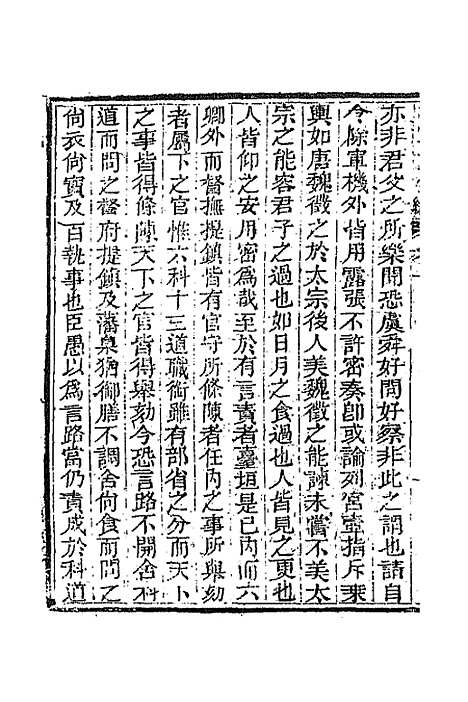 亦非君父之所樂聞恐虞舜好問好察非此之謂也請自
今除軍機外皆用露張不許密奏卽或論列宮壼指斥乘
輿如唐魏徵之於太宗後人美魏徵之能諫未嘗不美太
宗之能容君子之過也如日月之食過也人皆見之更也
人皆仰之安用密爲哉至於有言責者臺垣是已內而六
卿外而督撫提鎮皆有官守所條陳者任內之事所舉劾
者屬下之官惟六科十三道職銜雖有部省之分而天下
之事皆得條陳天下之官皆得舉劾今恐言路不開舍科
道而問之督府提鎮及藩臬猶御膳不調舍尙食而問之
尙衣尙寶及百執事也臣愚以爲言路當仍責成於科道